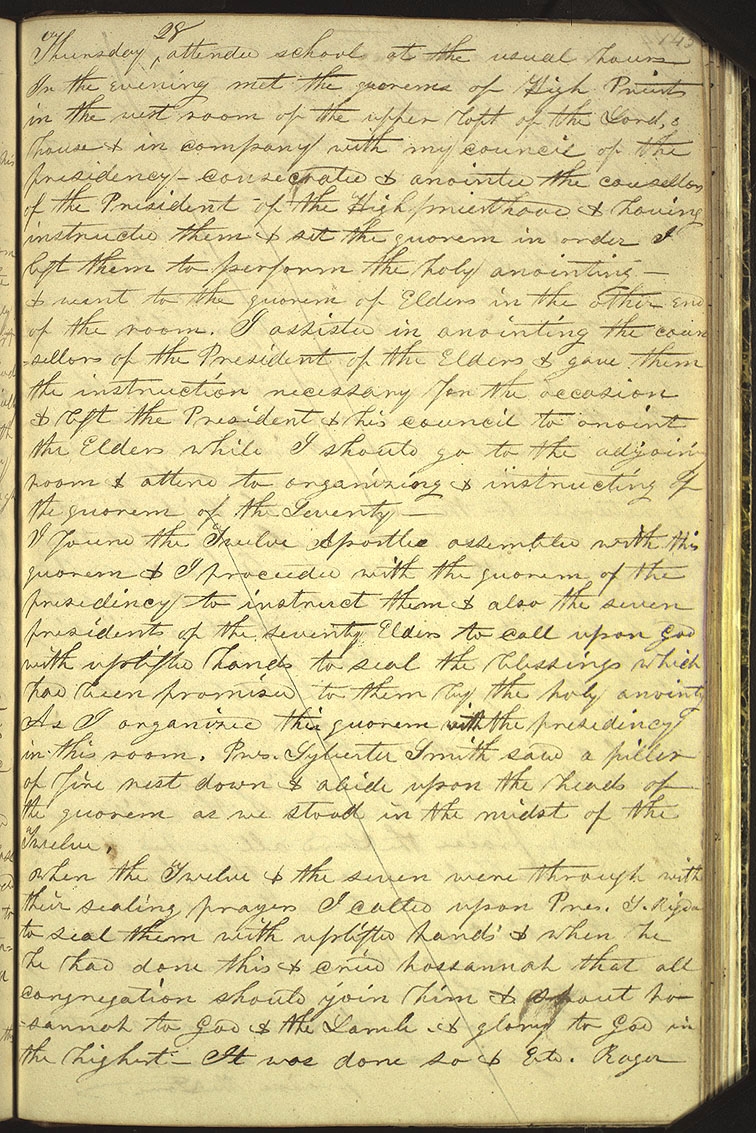 145
Thursday 28, attended school at the usual hours
In the evening met the quorems of High Priests
in the west room of the upper loft of the Lord,s
house & in company with my council of the
presidency – consecrated & anointed the cousellors
of the President of the High priesthood & having
instructed them & set the quorem in order I
left them to perform the holy anointing –
& went to the quorem of Elders in the other end
of the room. I assisted in anointing the coun
=sellors of the President of the Elders & gave them
the instruction necessary for the occasion
& left the President & his council to anoint
the Elders while I should go to the adjoing
room & attend to organizing & instructing of
the quorem of the Seventy –
I found the Twelve Apostles assembled with this
quorem & I proceeded with the quorem of the
presidincy to instruct them & also the seven
presidents of the seventy Elders to call upon God
with uplifted hands to seal the blessings which
had been promised to them by the holy anointing
As I organized this quorem with the presidency
in this room. Pres. Sylvester Smith saw a piller
of fire rest down & abide upon the heads of
the quorem as we stood in the midst of the
Twelve,
When the Twelve & the seven were through with
their sealing prayers I called upon Pres. S. Rigdon
to seal them with uplifted hands & when he
he had done this & cried hossannah that all
congregation should join him & shout ho-
sannah to God & the Lamb & glory to God in
the highest – It was done so & Eld. Roger